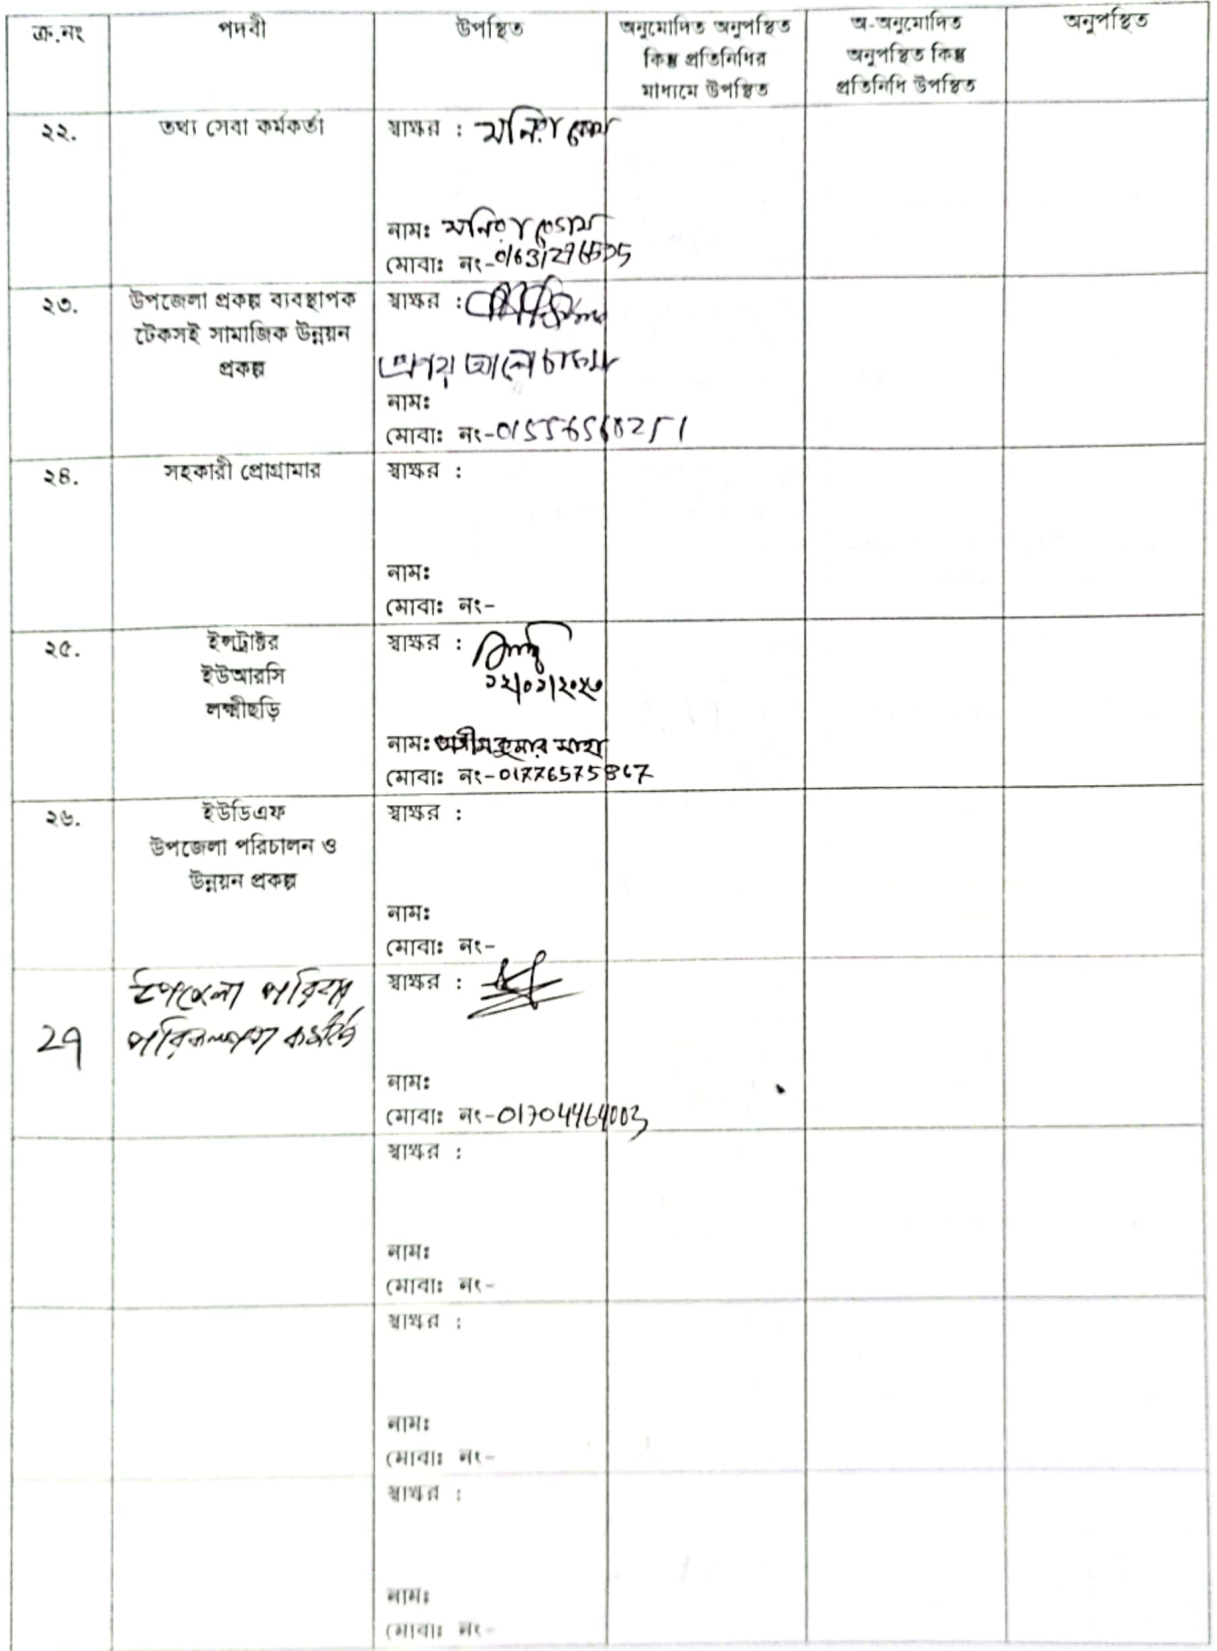 ক্র.নং পদবী উপস্থিত অনুমোদিত অনুপস্থিত কিন্তু প্রতিনিধির মাধ্যমে উপস্থিত অ-অনুমোদিত অনুপস্থিত কিন্তু প্রতিনিধি উপস্থিত অনুপস্থিত
২২. তথ্য সেবা কর্মকর্তা স্বাক্ষর : মনিরা বেগম
নাম: মনিরা বেগম
মোবা: নং-
২৩. উপজেলা প্রকল্প ব্যবস্থাপক
টেকসই সামাজিক উন্নয়ন
প্রকল্প
স্বাক্ষর :
চাকমা
নাম:
মোবা: নং-01556568251
২৪. সহকারী প্রোগ্রামার স্বাক্ষর :
নাম:
মোবা: নং-
২৫. ইন্সট্রাক্টর
ইউআরসি
লক্ষ্মীছড়ি
স্বাক্ষর :
নাম: অসীম কুমার সাহা
মোবা: নং-01776575867
২৬. ইউডিএফ
উপজেলা পরিচালন ও
উন্নয়ন প্রকল্প
স্বাক্ষর :
নাম:
মোবা: নং-
২৭ উপজেলা পরিবার
পরিকল্পনা কর্মকর্তা
স্বাক্ষর :
নাম:
মোবা: নং-01704464003
স্বাক্ষর :
নাম:
মোবা: নং-
স্বাক্ষর :
নাম:
মোবা: নং-
স্বাক্ষর :
নাম:
মোবা: নং-